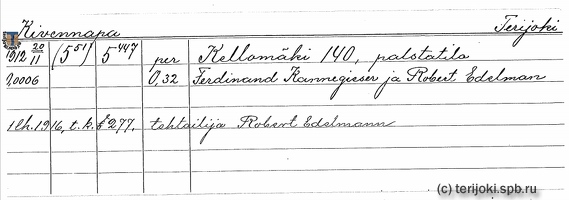 Kivennapa Terijoki
1912 20/11 (5⁵¹) 5⁴⁴⁷ per Kellomäki 140, palstatila
0,0006 0,32 Ferdinand Kannegieser ja Robert Edelman
1 lh. 1916, t.k. § 277. tehtailija Robert Edelmann
(c) terijoki.spb.ru